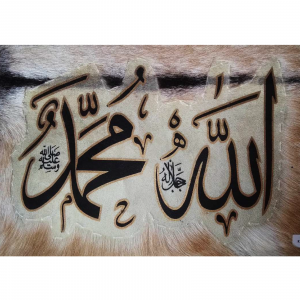 الله جل جلاله
محمد صلى الله عليه وسلم